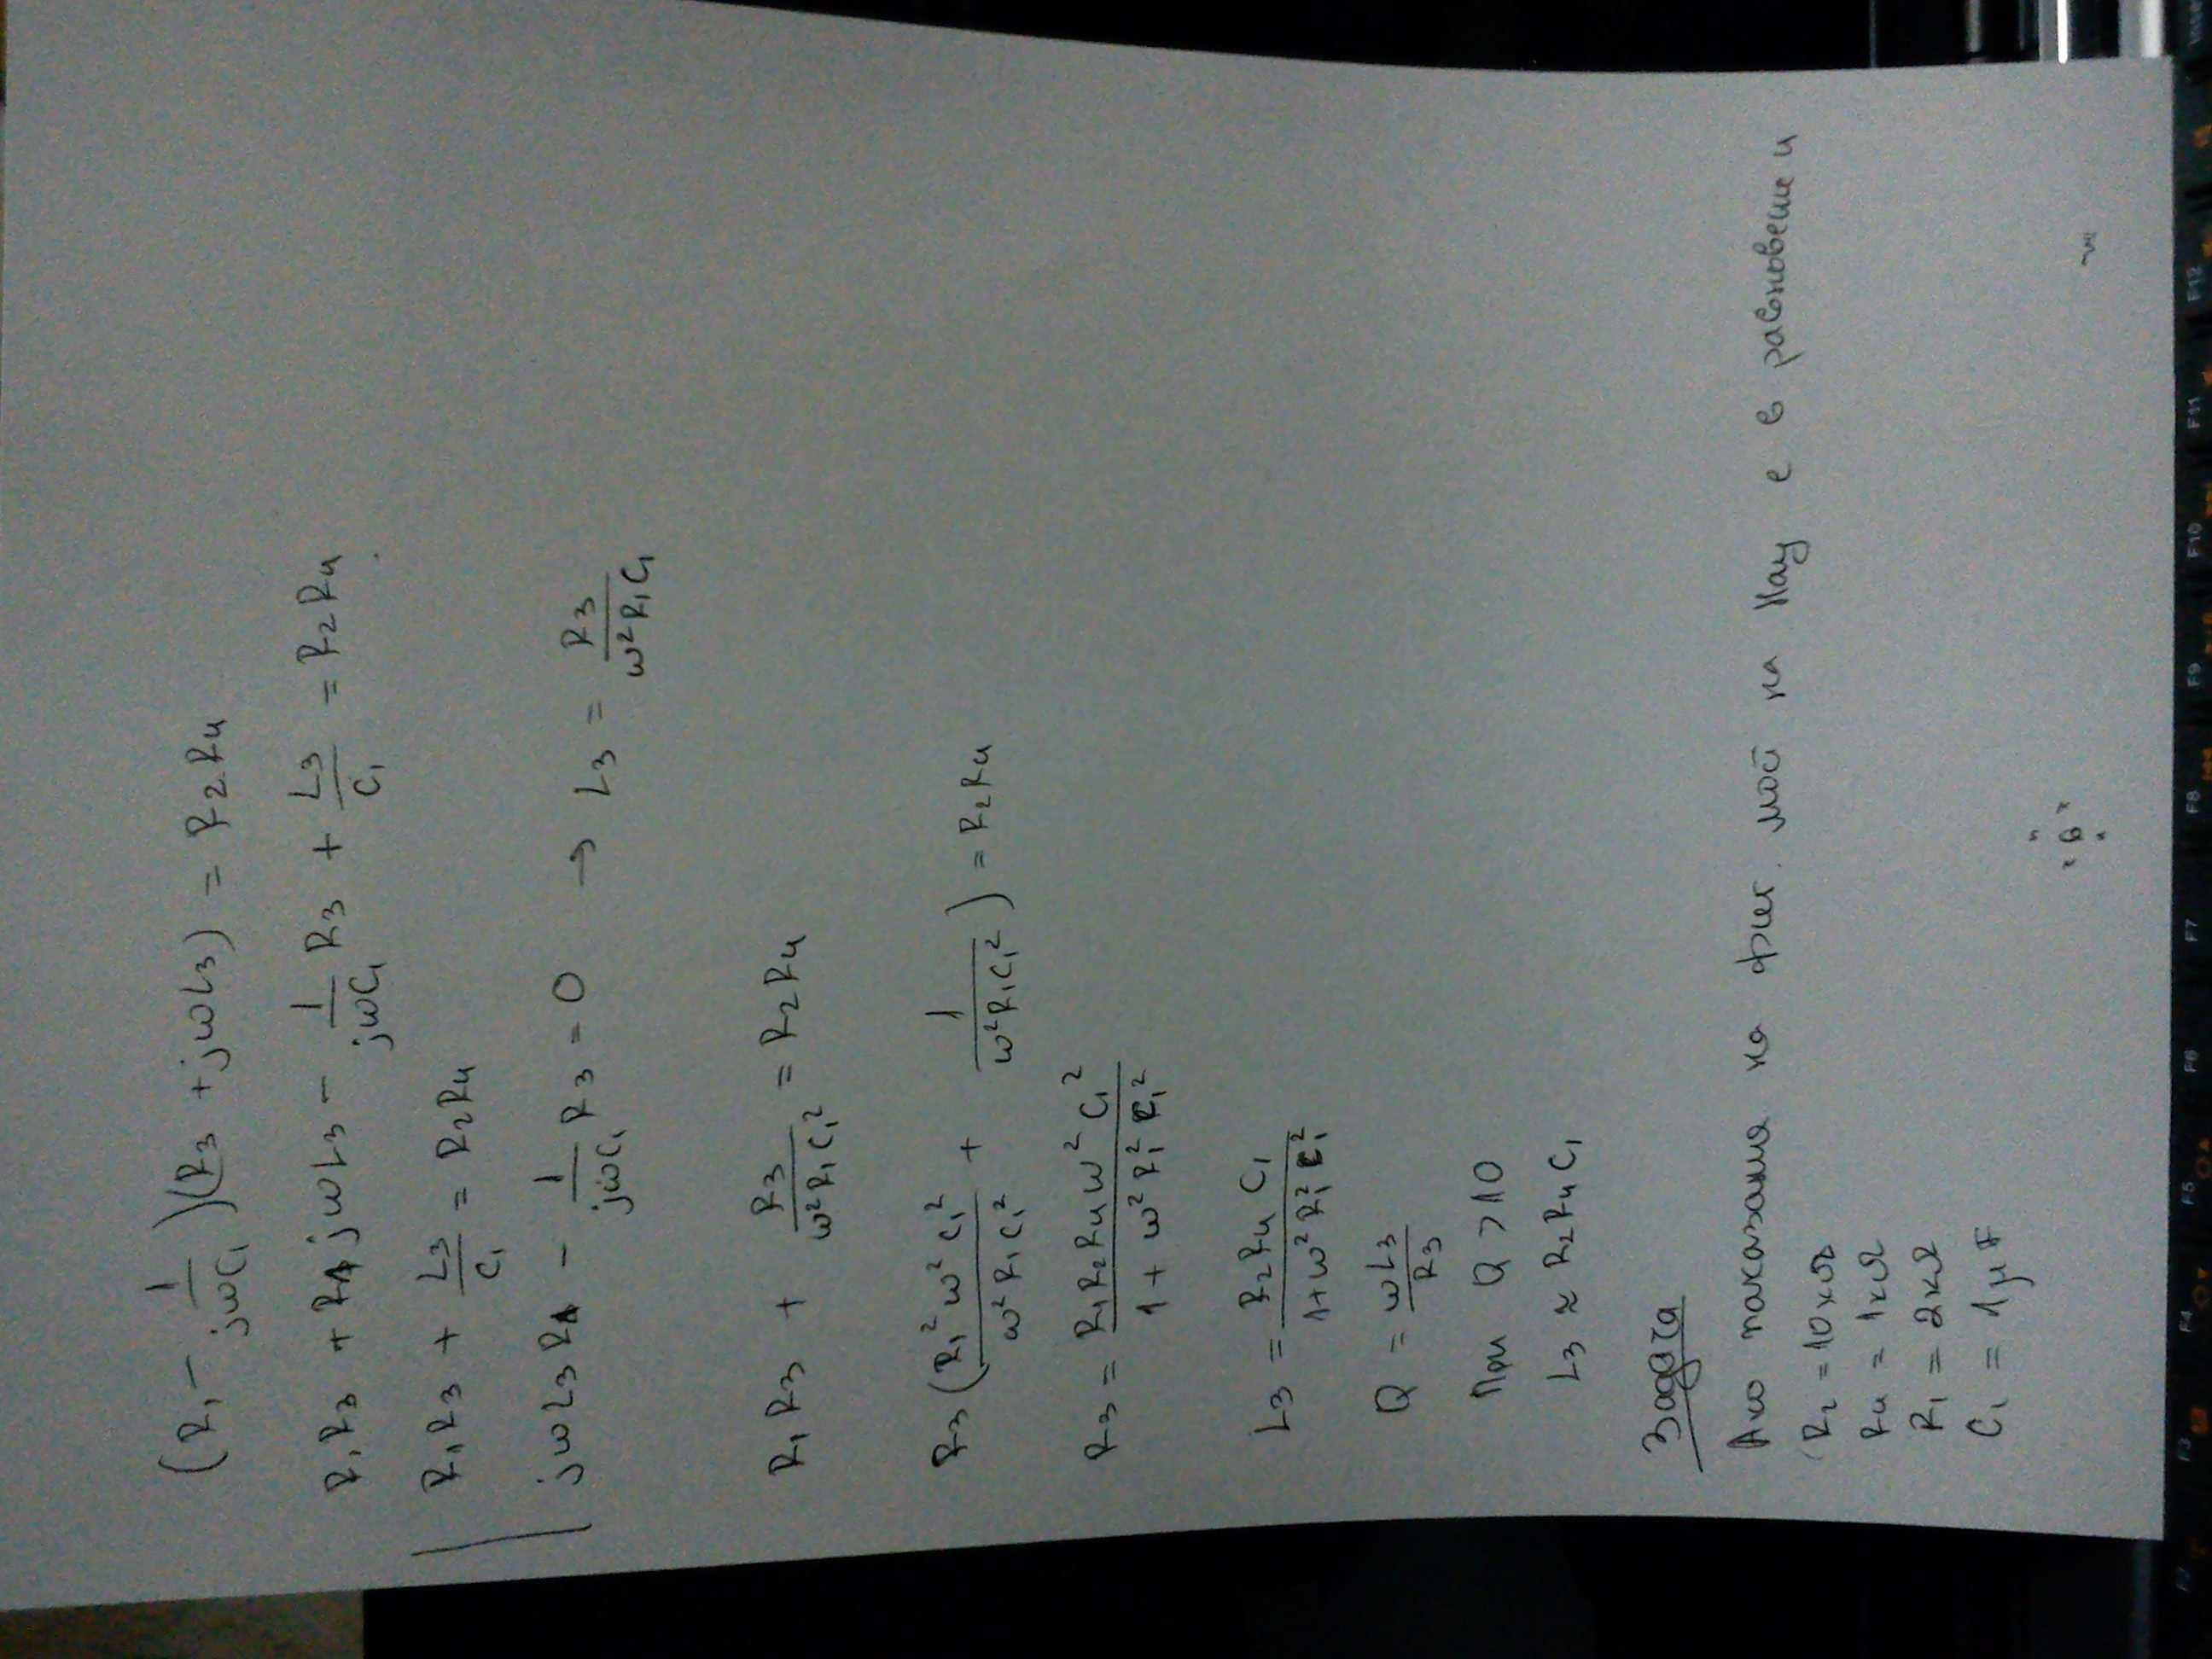 (R₁ - 1/jωC₁)(R₃ + jωL₃) = R₂R₄
R₁R₃ + R₁jωL₃ - 1/jωC₁ R₃ + L₃/C₁ = R₂R₄
R₁R₃ + L₃/C₁ = R₂R₄
jωL₃R₁ - 1/jωC₁ R₃ = 0 → L₃ = R₃/ω²R₁C₁
R₁R₃ + R₃/ω²R₁C₁² = R₂R₄
R₃(R₁²ω²C₁²/ω²R₁C₁² + 1/ω²R₁C₁²) = R₂R₄
R₃ = R₁R₂R₄ω²C₁²/1 + ω²R₁²C₁²
L₃ = R₂R₄C₁/1+ω²R₁²C₁²
Q = ωL₃/R₃
При Q > 10
L₃ ≈ R₂R₄C₁
Задача
Ако показания на фиг. мост на Hay е в равновесие и
R₂ = 10кΩ
R₄ = 1кΩ
R₁ = 2кΩ
C₁ = 1μF
F2 F3 F4 F5 F6 F7 F8 F9 F10 F11 F12